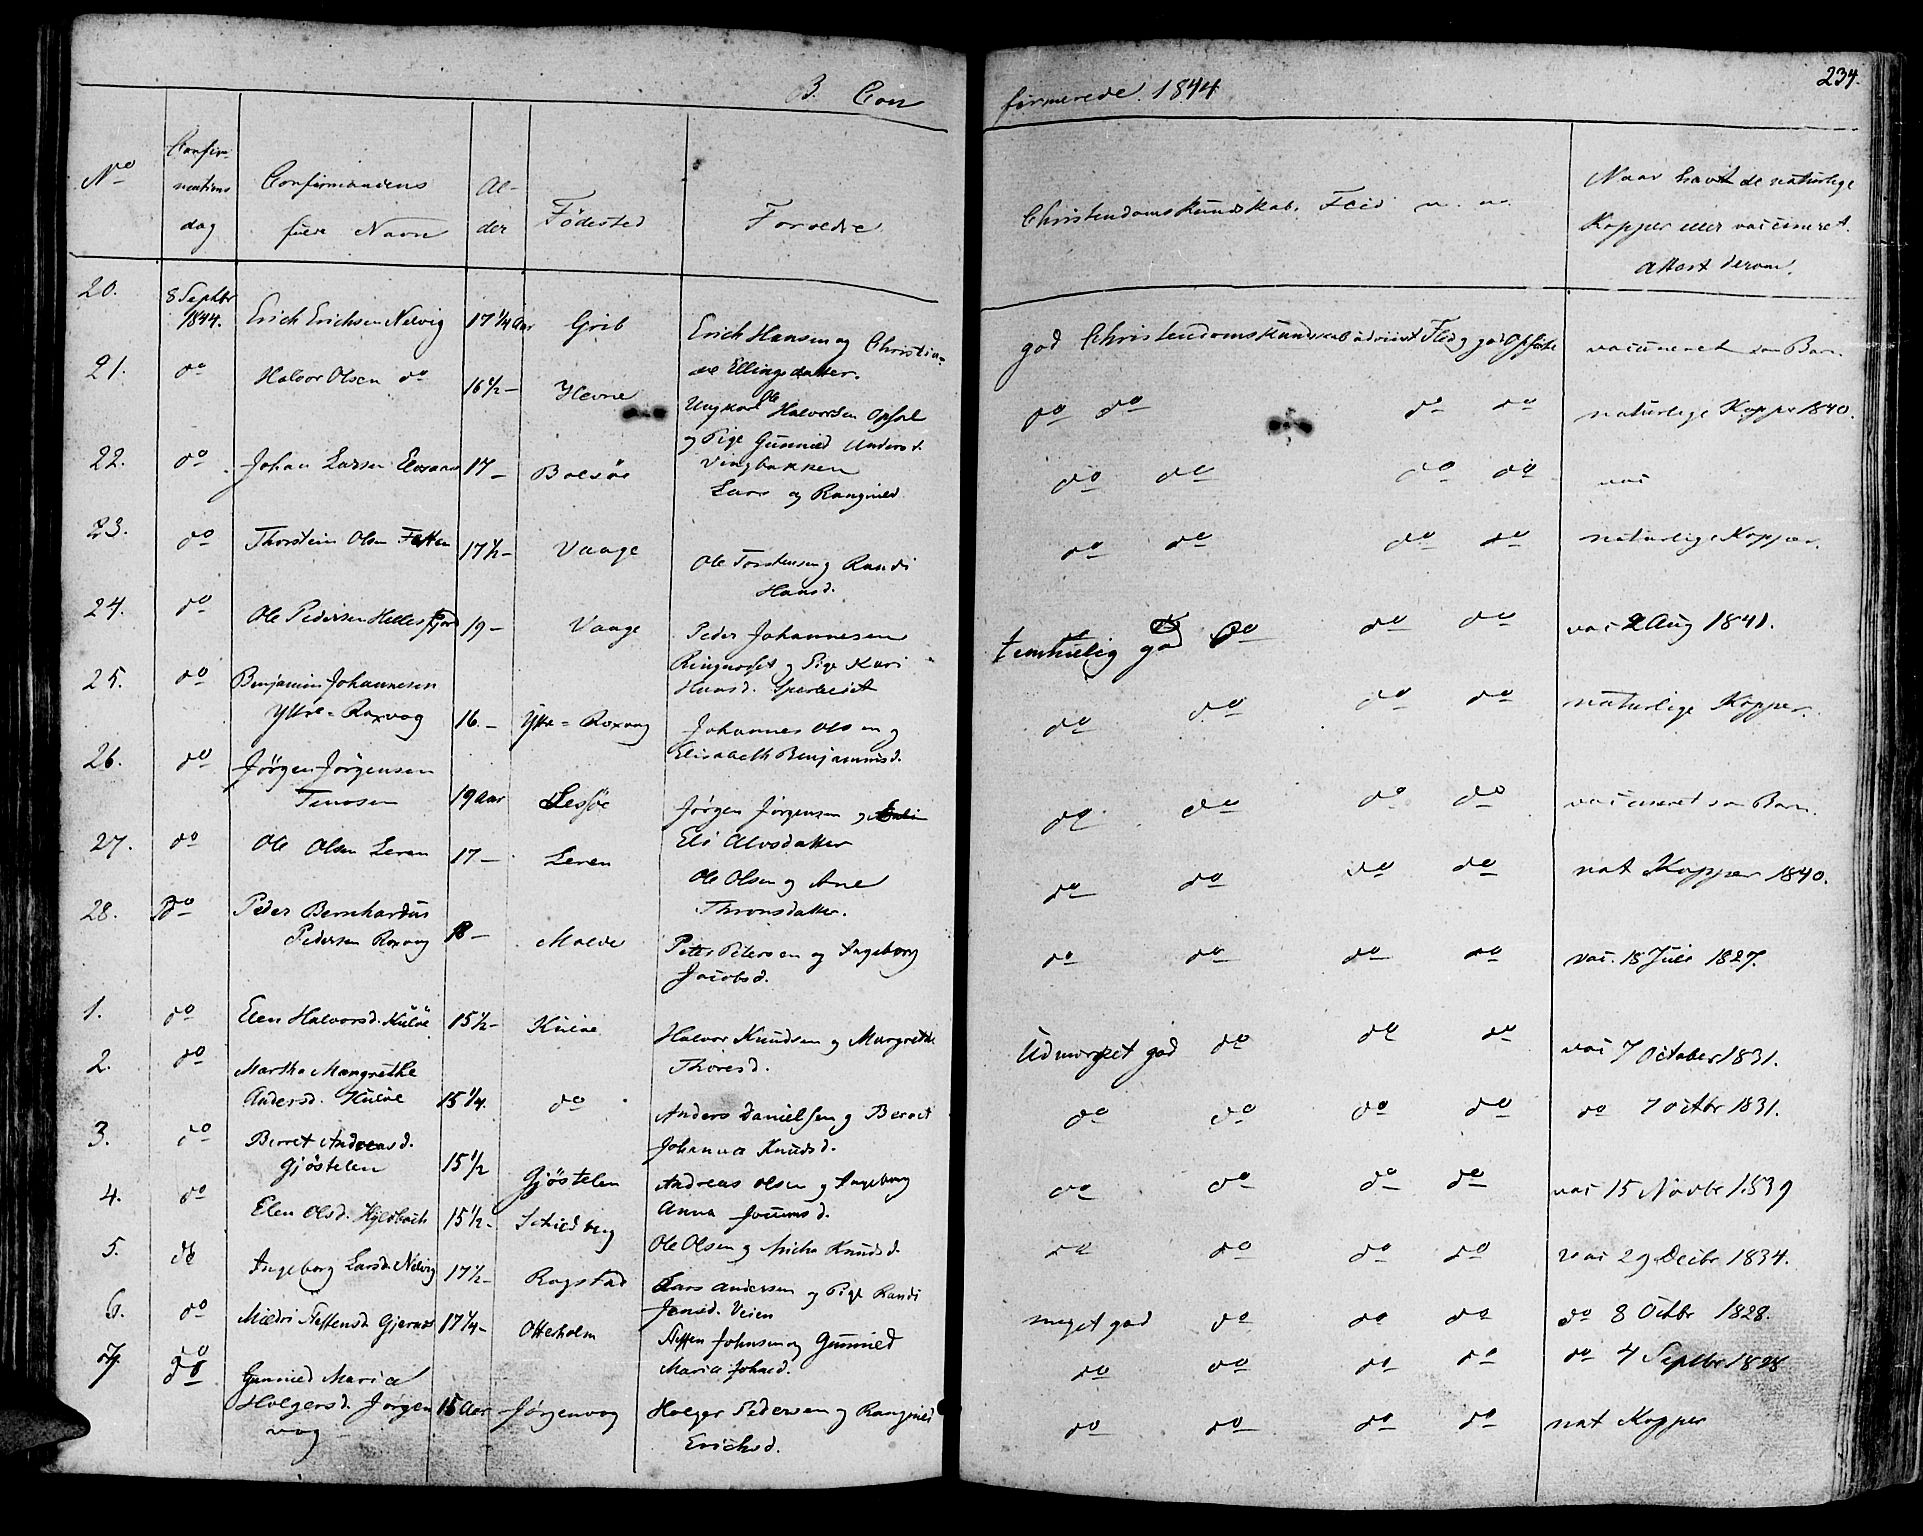 B. Con
firmerede. 1844
234.
No
Confir-
mations
dag
Confirmandens
fulde Navn
Al-
der
Fødested
Forældre
Christendomskundskab, Flid m. m.
Naar havt de naturlige
Kopper eller vaccineret.
Attest derom.
20. 8 Septbr 1844. Erich Erichsen Nelvig 17 1/4 Aar Grib Erich Hansen og Christia-
ne Ellingsdatter. god Christendomskundskab udviist Flid og god Opførsel vaccineret som Barn.
21. do Halvor Olsen do 16 1/2 - Hevne Ungkarl Ole Halvorsen Opsal
og Pige Gunnild Andersd.
Vingbakken do do do do naturlige Kopper 1840.
22. do Johan Larsen 17 - Bolsöe Lars og Rangnild do do do do vac
23. do Thorstein Olsen 17 1/2 - Vaage Ole Torstensen og Randi
Hansd. do do do do naturlige Kopper.
24. do Ole Pedersen Hellesfjord 19 - Vaage Peder Johannesen
Ringnæsset og Pige Kari
Hansd. temmelig god do do do vac 2 Aug 1841.
25. do Benjamin Johannesen
Yttre-Roxvog 16. - Yttre-Roxvog Johannes Olsen og
Elisabeth Benjaminsd. do do do do naturlige Kopper.
26. do Jørgen Jørgensen
19 Aar Lesjøe Jørgen Jørgensen og
Eli Alvsdatter do do do do vaccineret som Barn.
27. do Ole Olsen Leren 17 - Leren Ole Olsen og Ane
Thronsdatter. do do do do nat Kopper 1840.
28. do Peder Bernhardus
Pedersen Roxvog 18 - Molde Peter Petersen og Ingeborg
Jacobsd. do do do do vac. 18 Juli 1827.
1. do Elen Halvorsd. Kulöe 15 1/2 - Kulöe Halvor Knudsen og Margrethe
Thoresd. Udmærket god do do do vac 7 October 1831.
2. do Martha Mangrethe
Andersd. Kulöe 15 1/4. do Anders Danielsen og Beret
Johanna Knudsd. do do do do do 7 Octbr 1831.
3. do Berret Andreasd.
Gjöstelen 15 1/2 Gjöstelen Andreas Olsen og Ingeborg
Anna do do do do vac 15 Novbr 1839
4. do Elen Olsd. 15 1/2 - Ole Olsen og Knudsd. do do do do vac 29 Decbr 1834.
5. do Ingeborg Larsd. Nelvig 17 1/2 - Rogstad Lars Andersen og Pige Randi
Jensd. Veien meget god do do do do 8 Octbr 1828.
6. do Steffensd. Gjernæs 17 1/4 - Otterholm Steffen Johnsen og Gunnild
Maria Johnsd. do do do do do 4 Septbr 1828
7. do Gunnild Maria
Holgersd. Jørgen
vog 15 Aar Jørgenvog Holger Pedersen og Rangnild
Erichsd. do do do do nat Kopper